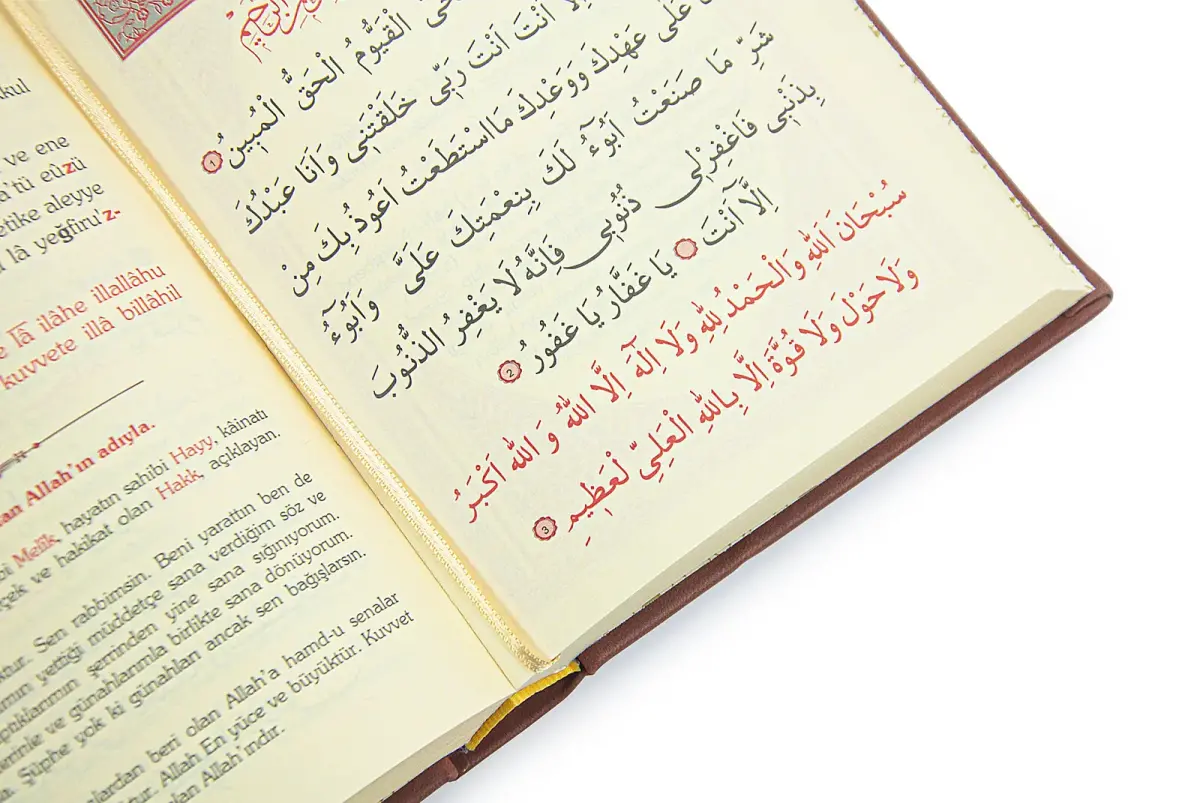 الرَّحِيمِ
الْقَيُّومُ الْحَقُّ الْمُبِينُ 1
اِلَّا اَنْتَ اَنْتَ رَبِّى خَلَقْتَنِى وَاَنَا عَبْدُكَ
عَلٰى عَهْدِكَ وَوَعْدِكَ مَااسْتَطَعْتُ اَعُوذُ بِكَ مِنْ
شَرِّ مَا صَنَعْتُ اَبُوۤءُ لَكَ بِنِعْمَتِكَ عَلَىَّ وَاَبُوۤءُ
بِذَنْبِى فَاغْفِرْلِى ذُنُوبِى فَاِنَّهُ لَا يَغْفِرُ الذُّنُوبَ
اِلَّا اَنْتَ يَا غَفَّارُ يَا غَفُورُ 2
سُبْحَانَ اللّٰهِ وَالْحَمْدُ لِلّٰهِ وَلَا اِلٰهَ اِلَّا اللّٰهُ وَ اللّٰهُ اَكْبَرُ
وَلَا حَوْلَ وَلَا قُوَّةَ اِلَّا بِاللّٰهِ الْعَلِىِّ لْعَظِيمِ 3
kul
ve ene
a'tü eûzü
etike aleyye
lâ yeğfiru'z-
lâ ilâhe illallâhu
kuvvete illâ billâhil
Allah'ın adıyla.
Melîk, hayatın sahibi Hayy, kâinatı
ve hakikat olan Hakk, açıklayan.
Sen rabbimsin. Beni yarattın ben de
yettiği müddetçe sana verdiğim söz ve
şerrinden yine sana sığınıyorum.
ve günahlarımla birlikte sana dönüyorum.
Şüphe yok ki günahları ancak sen bağışlarsın.
beri olan Allah'a hamd-u senalar
Allah En yüce ve büyüktür. Kuvvet
olan Allah'ındır.